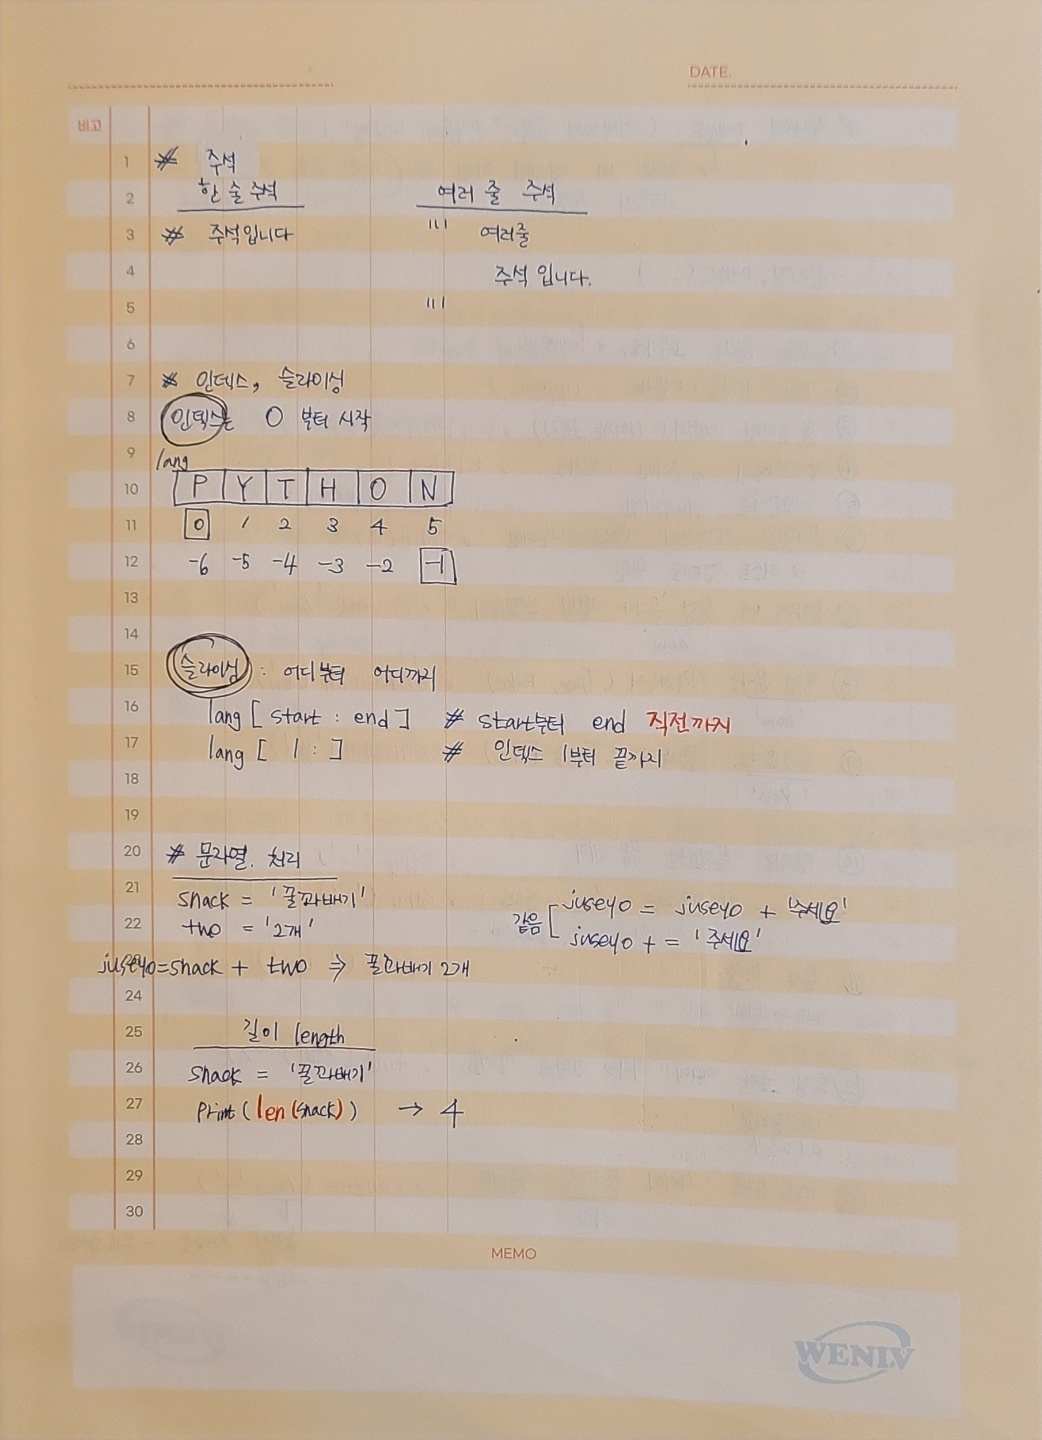 DATE.
비고
1 # 주석
2 한 줄 주석 여러 줄 주석
3 # 주석입니다 ''' 여러줄
4 주석 입니다.
5 '''
6
7 # 인덱스, 슬라이싱
8 인덱스는 0 부터 시작
9 lang
10 P Y T H O N
11 0 1 2 3 4 5
12 -6 -5 -4 -3 -2 -1
13
14
15 슬라이싱 : 어디부터 어디까지
16 lang [ start : end ] # start부터 end 직전까지
17 lang [ 1 : ] # 인덱스 1부터 끝까지
18
19
20 # 문자열. 처리
21 snack = '꿀꽈배기' juseyo = juseyo + '주세요'
22 two = '2개' 같음 juseyo + = '주세요'
juseyo=snack + two ⇒ 꿀꽈배기 2개
24
25 길이 length
26 snack = '꿀꽈배기'
27 print ( len (snack) ) → 4
28
29
30
MEMO
WENIV